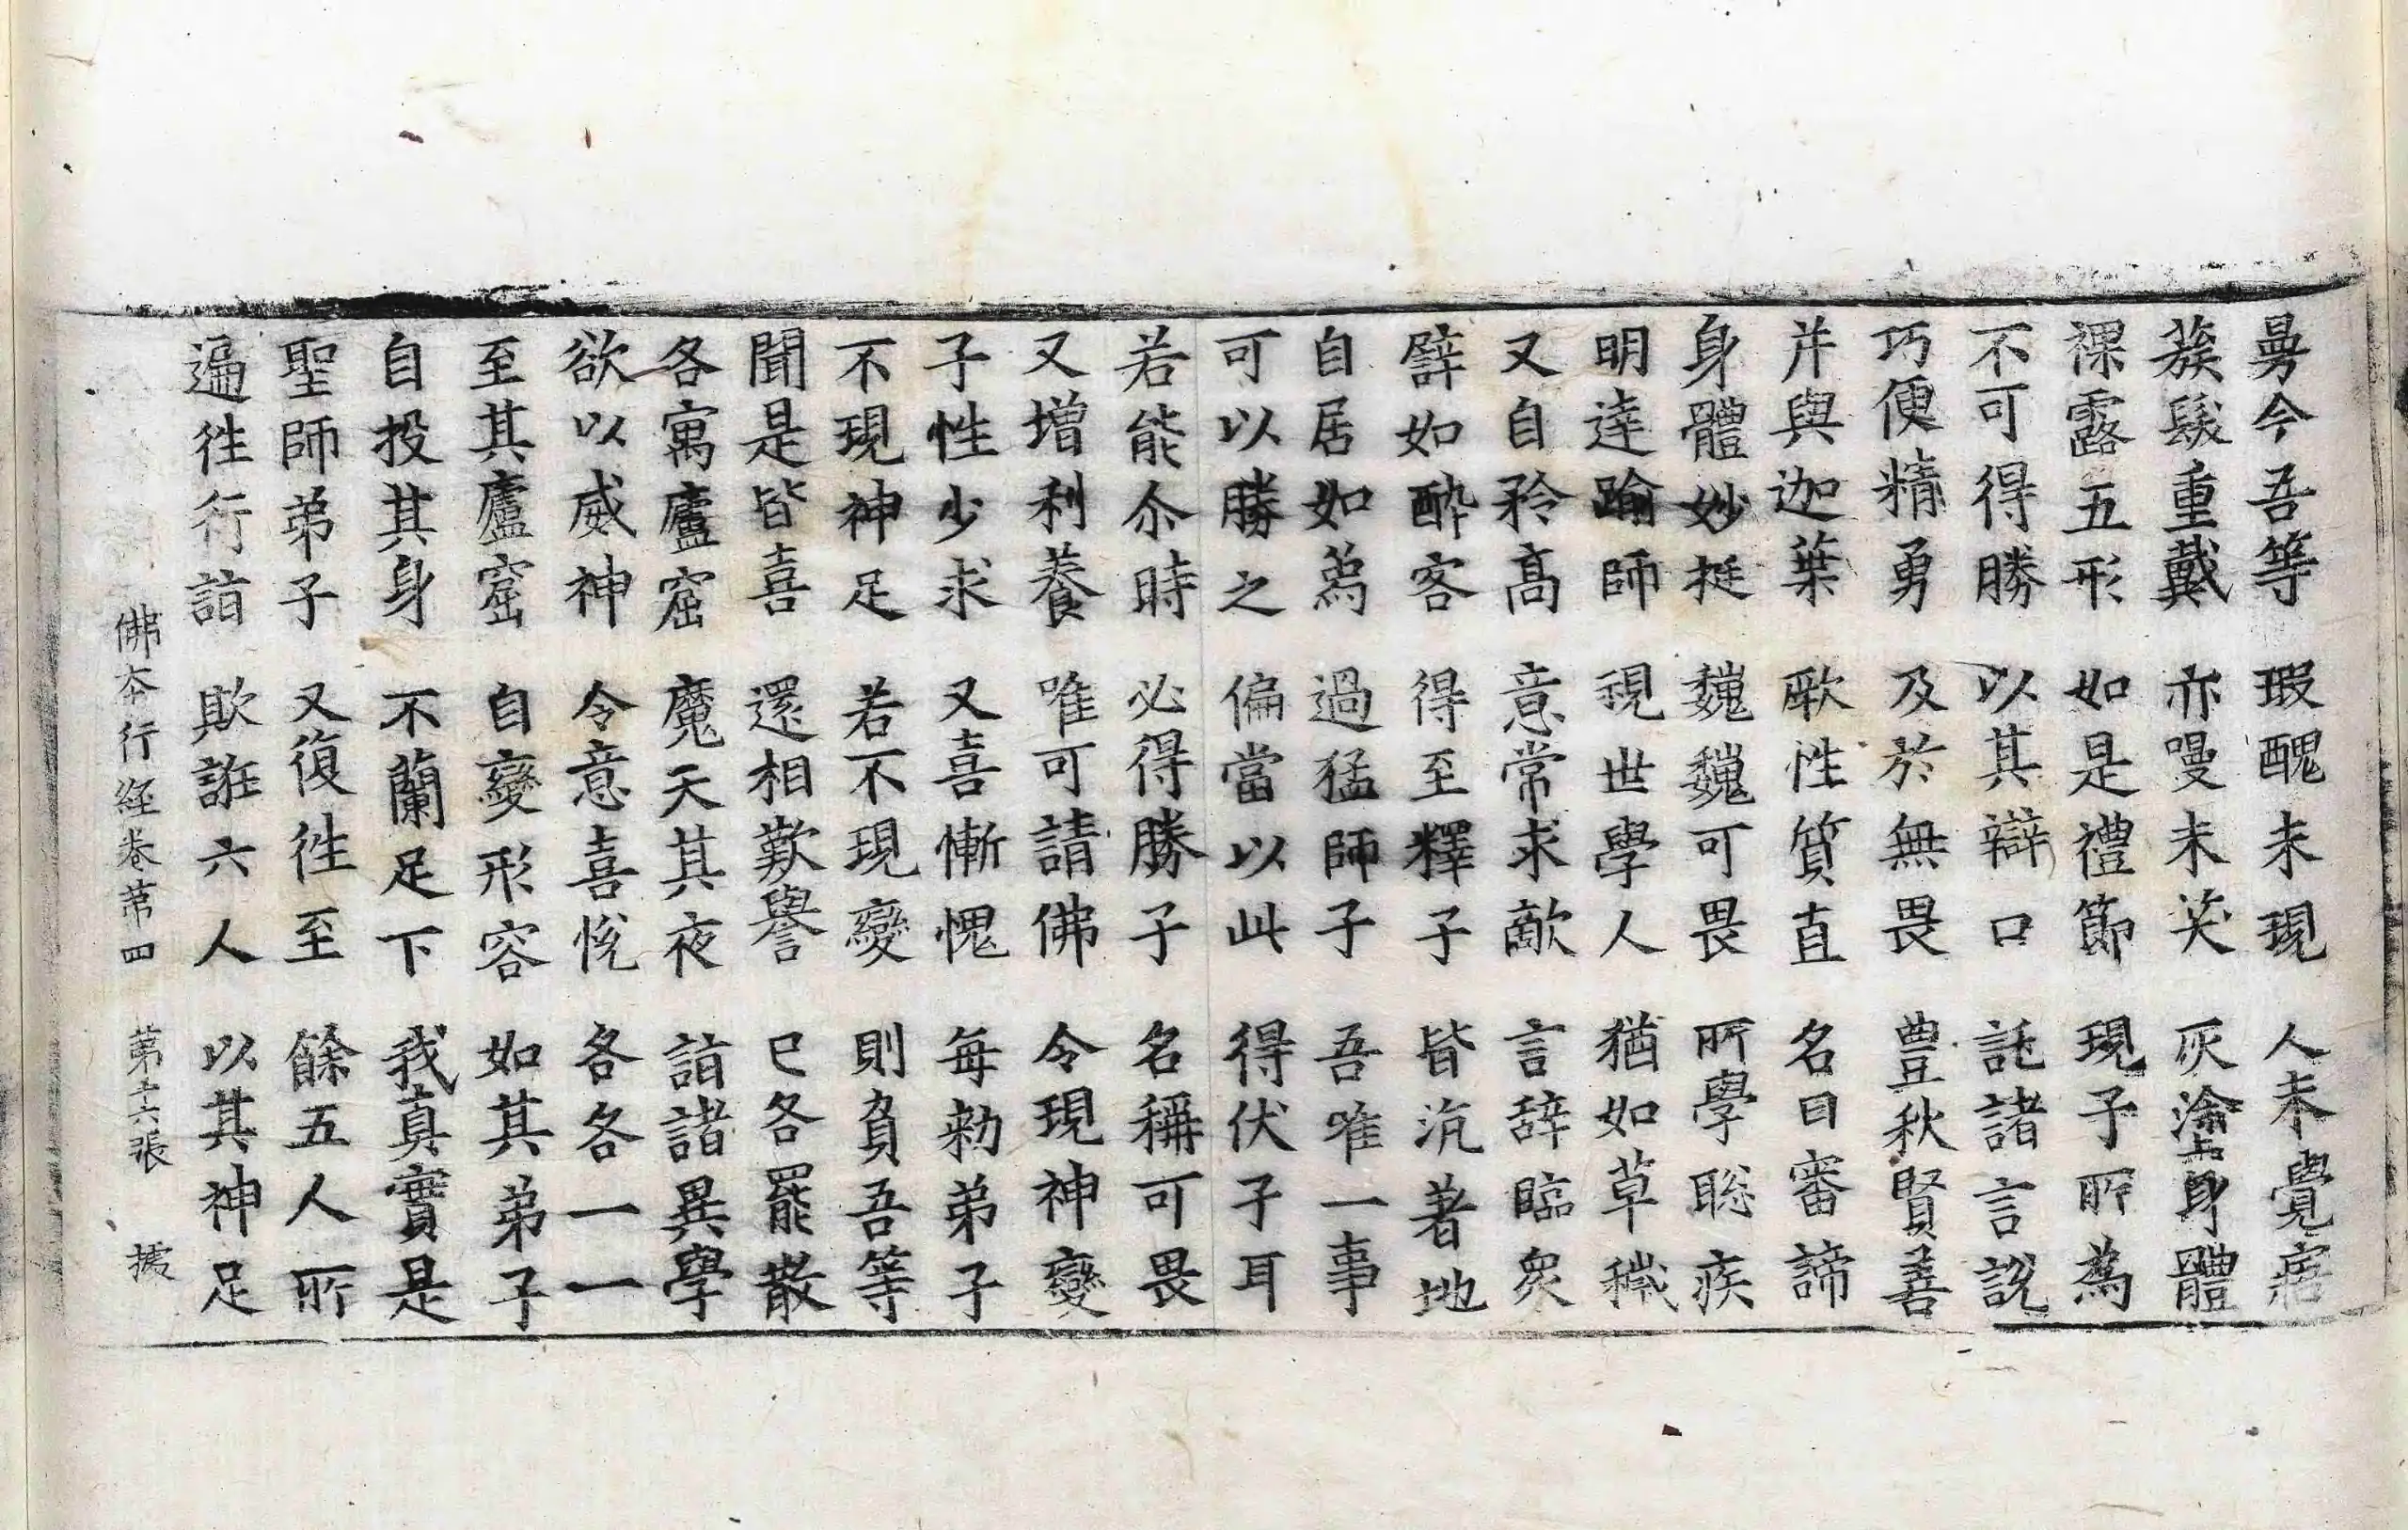 曼今吾等 瑕醜未現 人未覺寤
蔟髮重戴 亦嘜未笑 灰塗身體
裸露五形 如是禮節 現子所為
不可得勝 以其辯口 託諸言説
巧便精勇 及於無畏 豊秋賢善
并與迦葉 厥性質直 名曰審諦
身體妙挺 巍巍可畏 所學聡疾
明達踰師 現世學人 猶如草穢
又自矜髙 意常求敵 言辝臨衆
譬如酔客 得至釋子 皆汎著地
自居如為 過猛師子 吾唯一事
可以勝之 偏當以此 得伏子耳
若能尒時 必得勝子 名稱可畏
又增利養 唯可請佛 令現神變
子性少求 又喜慚愧 每勑弟子
不現神足 若不現變 則負吾等
聞是皆喜 還相歎譽 已各罷散
各寓廬窟 魔天其夜 詣諸異學
欲以威神 令意喜悅 各各一一
至其廬窟 自變形容 如其弟子
自投其身 不蘭足下 我真實是
聖師弟子 又復徃至 餘五人所
遍徃行詣 欺誑六人 以其神足
佛夲行経卷第四 第十六張